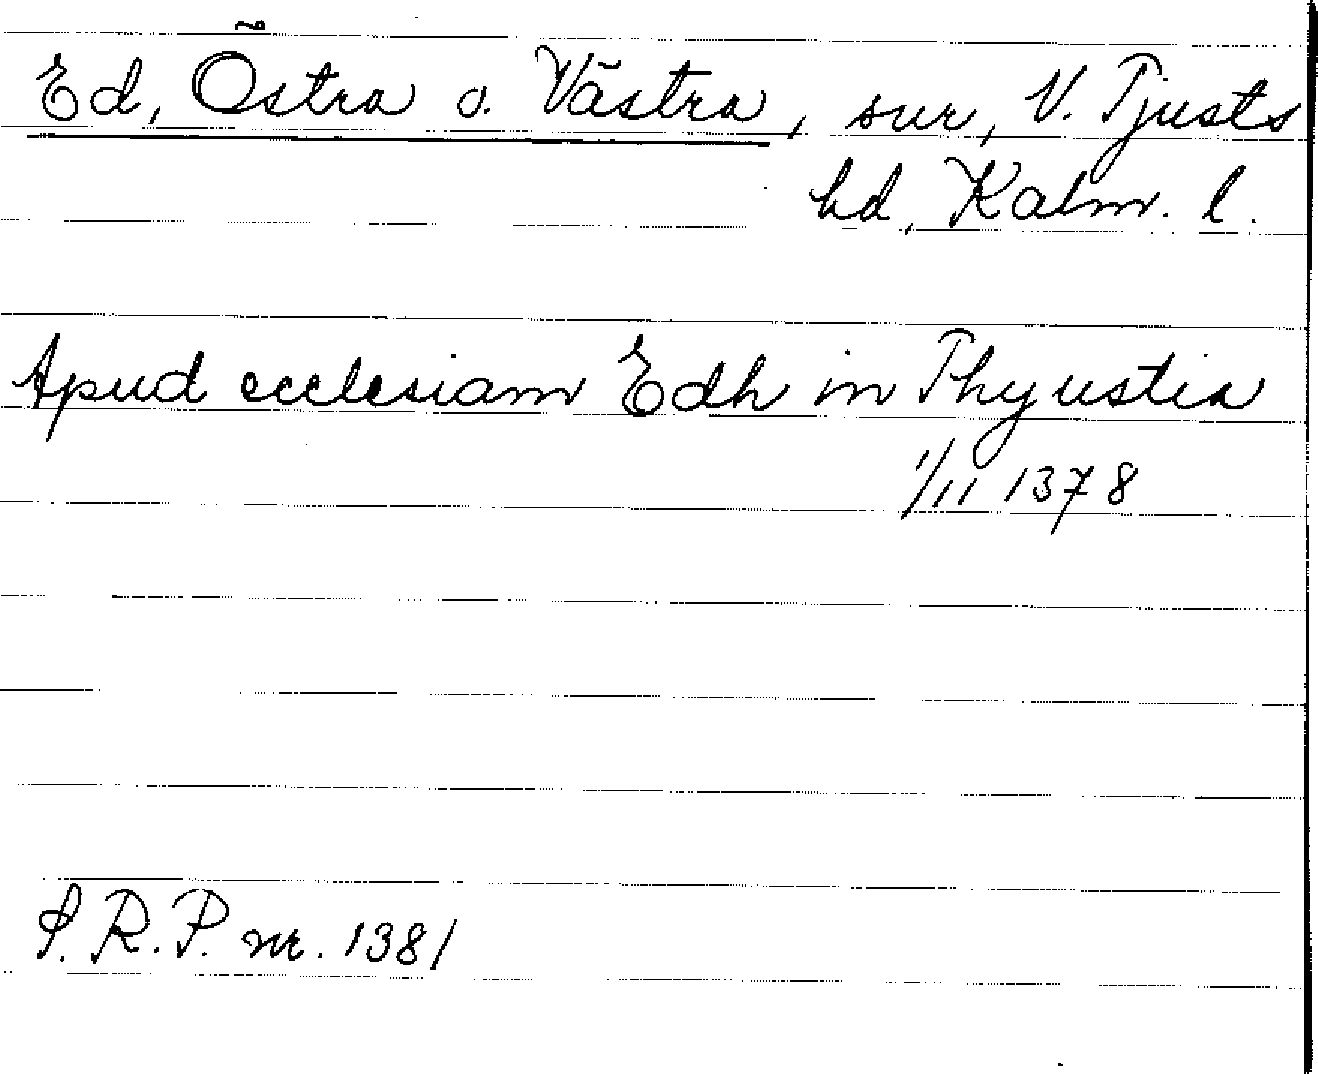 Ed, Östra o. Västra, snr, V. Tjusts
hd, Kalm. l.
Apud ecclesiam Edh in Thyustia
1/11 1378
S.R.P. nr. 1381